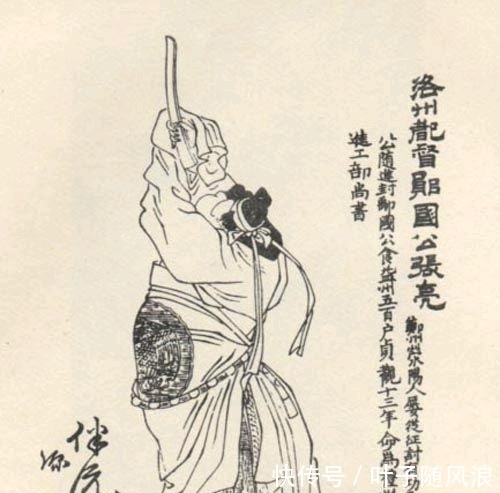 洛州都督鄖國公張亮
鄭州滎陽人屢從征討
公隨進封鄖國公食益州五百戶貞觀十三年命為
進工部尚書
伴
源
快传号/叶子随风浪